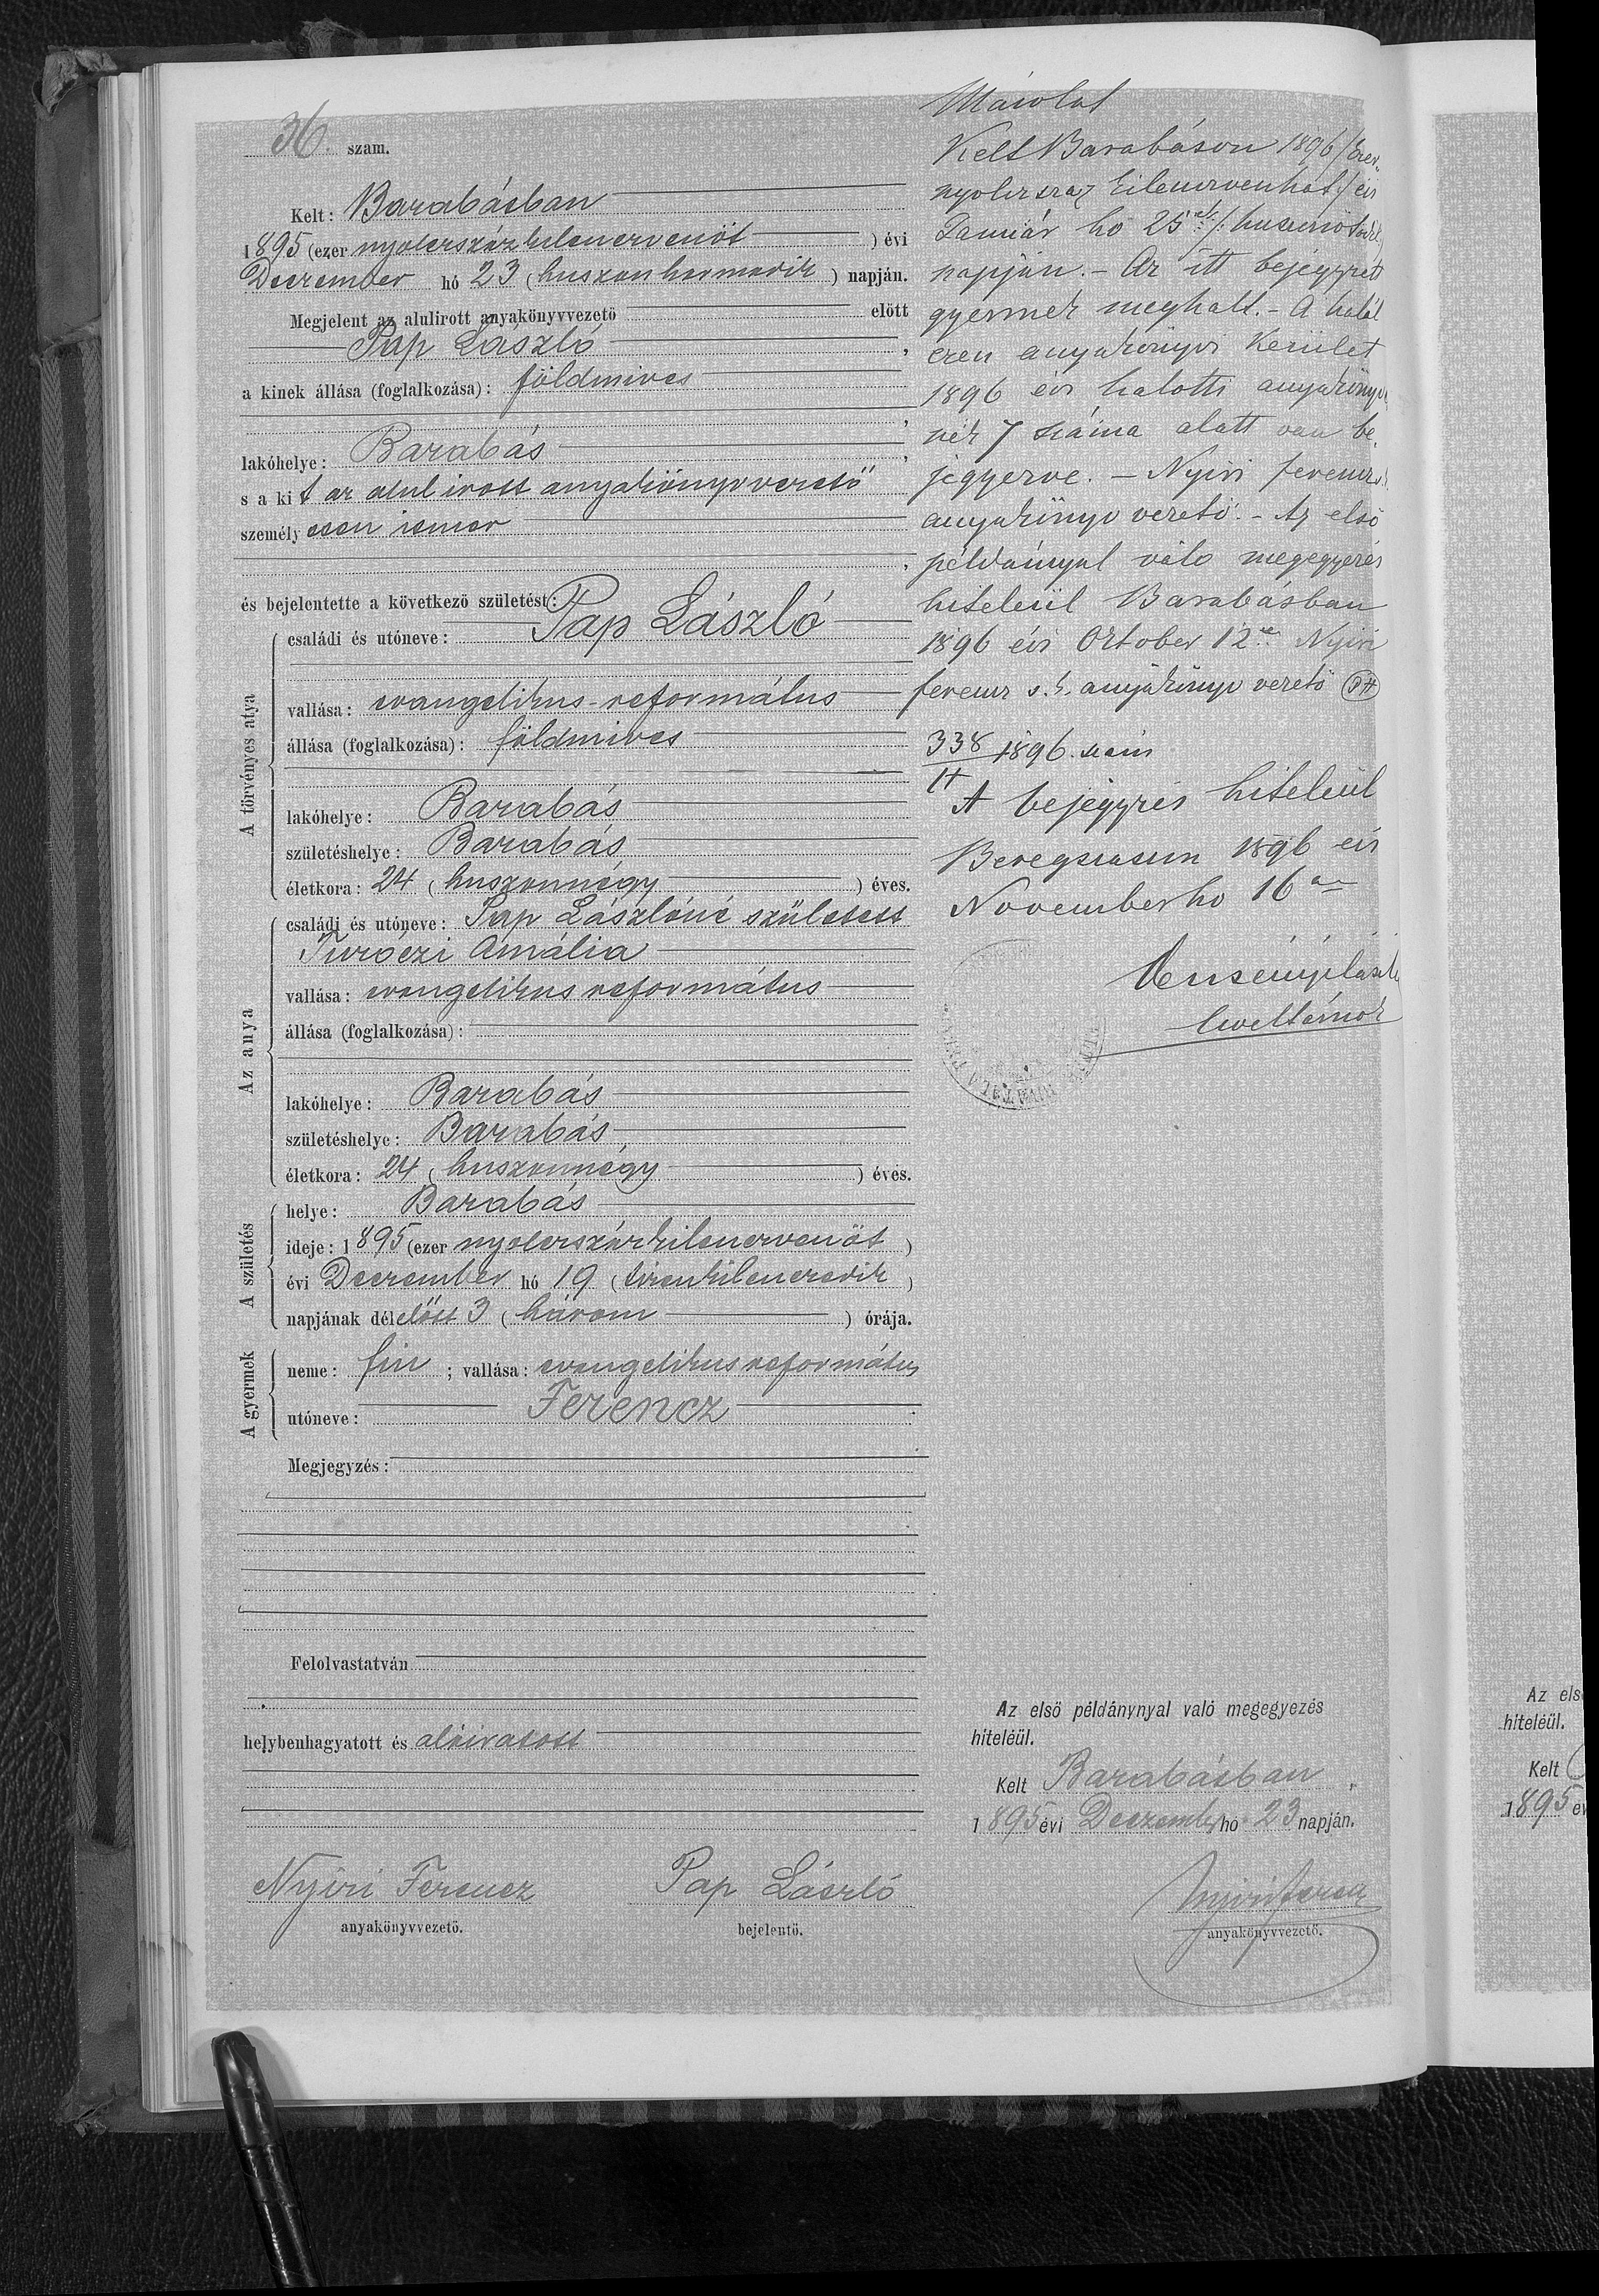 36. szám.
Kelt: Barabásban
1895 (ezer nyolczszázkilenczvenöt) évi
Deczember hó 23 (huszonharmadik) napján.
Megjelent az alulirott anyakönyvvezető előtt
Pap László,
a kinek állása (foglalkozása): földmives
,
lakóhelye: Barabás,
s a kit az alulirott anyakönyvvezető
személyesen ismer
,
és bejelentette a következő születést:
A törvényes atya
családi és utóneve: Pap László
vallása: evangelikus-református
állása (foglalkozása): földmives
lakóhelye: Barabás
születéshelye: Barabás
életkora: 24 (huszonnégy) éves.
Az anya
családi és utóneve: Pap Lászlóné született
Turóczi Amália
vallása: evangelikus református
állása (foglalkozása):
lakóhelye: Barabás
születéshelye: Barabás
életkora: 24 (huszonnégy) éves.
A születés
helye: Barabás
ideje: 1895 (ezer nyolczszázkilenczvenöt)
évi Deczember hó 19 (tizenkilenczedik)
napjának délelőtt 3 (három) órája.
A gyermek
neme: fiu; vallása: evangelikus református
utóneve: Ferencz.
Megjegyzés:
Felolvastatván
helybenhagyatott és aláiratott
Nyiri Ferencz
anyakönyvvezető.
Pap László
bejelentő.
Másolat
Kelt Barabáson 1896 /Ezer
nyolczszáz kilenczvenhat/ évi
Január hó 25 /:huszonötödik
napján. – Az itt bejegyzett
gyermek meghalt. – A halál
ezen anyakönyvi kerület
1896 évi halotti anyakönyvé
nek 7 száma alatt van be,
jegyezve. – Nyiri Ferencz s.k.
anyakönyv vezető. – Az első
példánynyal való megegyezés
hiteléül Barabásban
1896 évi October 12 Nyiri
Ferencz s.k. anyakönyv vezető PH
338/II 1896. szám
A bejegyzés hiteléül
Beregszászon 1896 évi
November hó 16án
levéltárnok
Az első példánynyal való megegyezés
hiteléül.
Kelt Barabásban,
1895 évi Deczember hó 23 napján.
Nyiri Ferencz
anyakönyvvezető.
Az els
hiteléül.
Kelt
1895 év